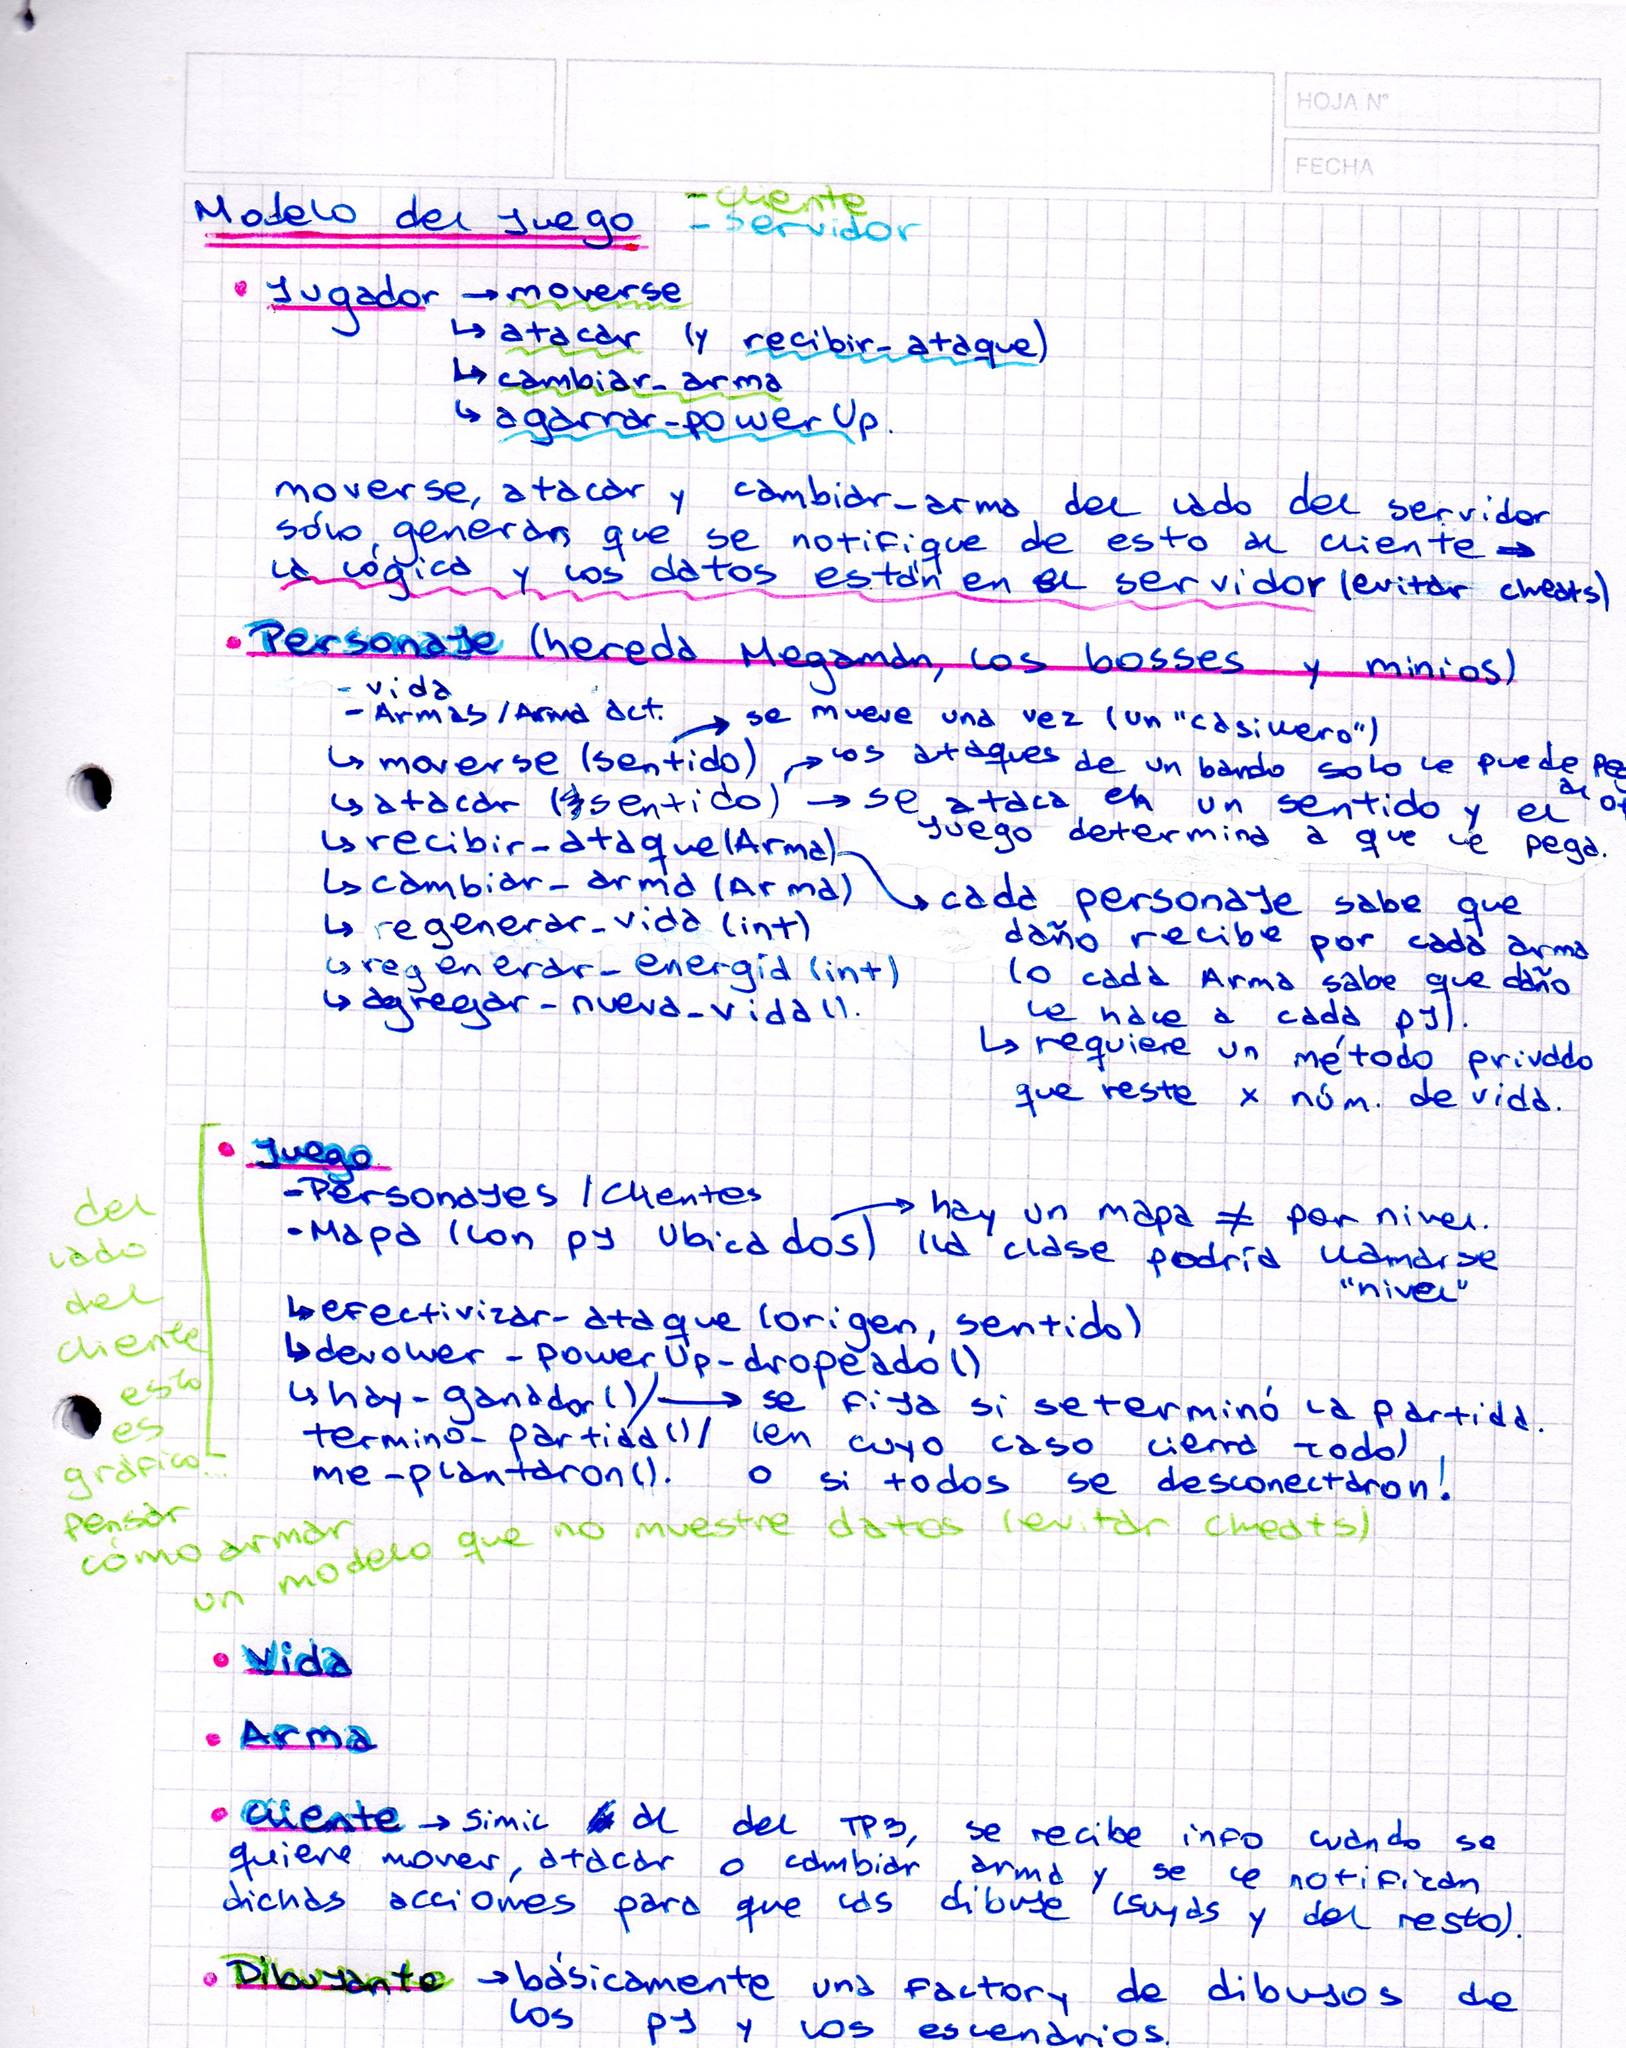 HOJA Nº
FECHA
Modelo del Juego
- cliente
- servidor
• Jugador → moverse
↳ atacar (y recibir_ataque)
↳ cambiar_arma
↳ agarrar_powerUp.
moverse, atacar y cambiar_arma del lado del servidor
sólo generan que se notifique de esto al cliente →
la lógica y los datos están en el servidor (evitar cheats)
• Personaje (hereda Megaman, los bosses y minios)
- vida
- Armas/Arma act.
→ se mueve una vez (un "casillero")
↳ moverse (sentido)
→ los ataques de un bando solo le puede
al
↳ atacar (sentido) → se ataca en un sentido y el
juego determina a que le pega.
↳ recibir_ataque(Arma)
↳ cambiar_arma (Arma)
→ cada personaje sabe que
daño recibe por cada arma
(o cada Arma sabe que daño
le hace a cada pj).
↳ requiere un método privado
que reste x núm. de vida.
↳ regenerar_vida (int)
↳ regenerar_energía (int)
↳ agregar_nueva_vida().
• Juego
- Personajes / Clientes
- Mapa (con pj ubicados) → hay un mapa ≠ por nivel.
(la clase podría llamarse
"nivel"
↳ efectivizar_ataque (origen, sentido)
↳ devolver_powerUp_dropeado()
↳ hay_ganador()/ → se fija si se terminó la partida.
termino_partida()/ (en cuyo caso cierra todo)
me_plantaron(). o si todos se desconectaron!
del
lado
del
cliente
esto
es
gráfico...
pensar
cómo armar
un modelo que no muestre datos (evitar cheats)
• Vida
• Arma
• Cliente → simil al del TP3, se recibe info cuando se
quiere mover, atacar o cambiar arma y se le notifican
dichas acciones para que las dibuje (suyas y del resto).
• Dibujante → básicamente una factory de dibujos de
los pj y los escenarios.